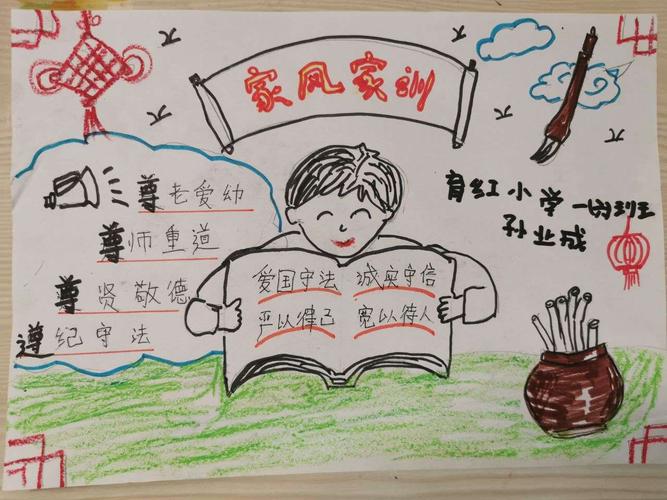 家风家训
尊老爱幼
尊师重道
尊贤敬德
遵纪守法
爱国守法 诚实守信
严以律己 宽以待人
育红小学一